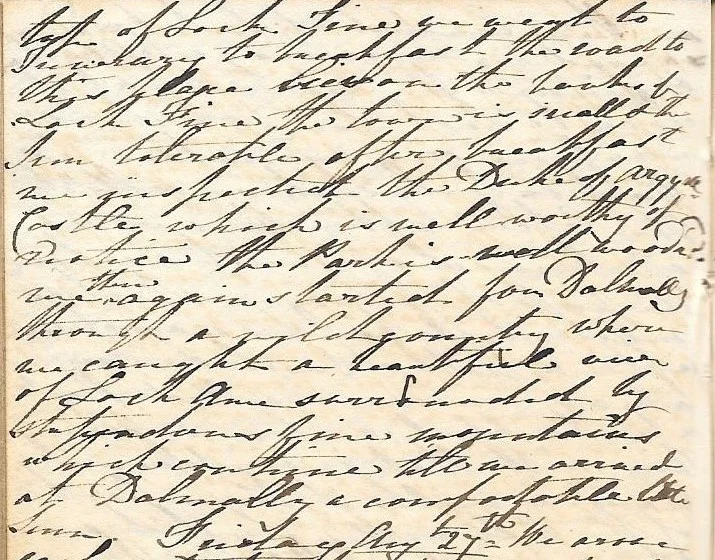 top of Loch Fine we went to
Inverary to breakfast the road to
this place is on the banks of
Loch Fine the town is small & the
Inn tolerable after breakfast
we inspected the Duke of Argyle
Castle which is well worthy of
notice the Park is well wooded
we then again started for Dalmally
through a wild country where
we caught a beautiful view
of Loch Awe surrounded by
stupendous fine mountains
which continue till we arrived
at Dalmally a comfortable little
Inn. Friday Aug 27th We arose